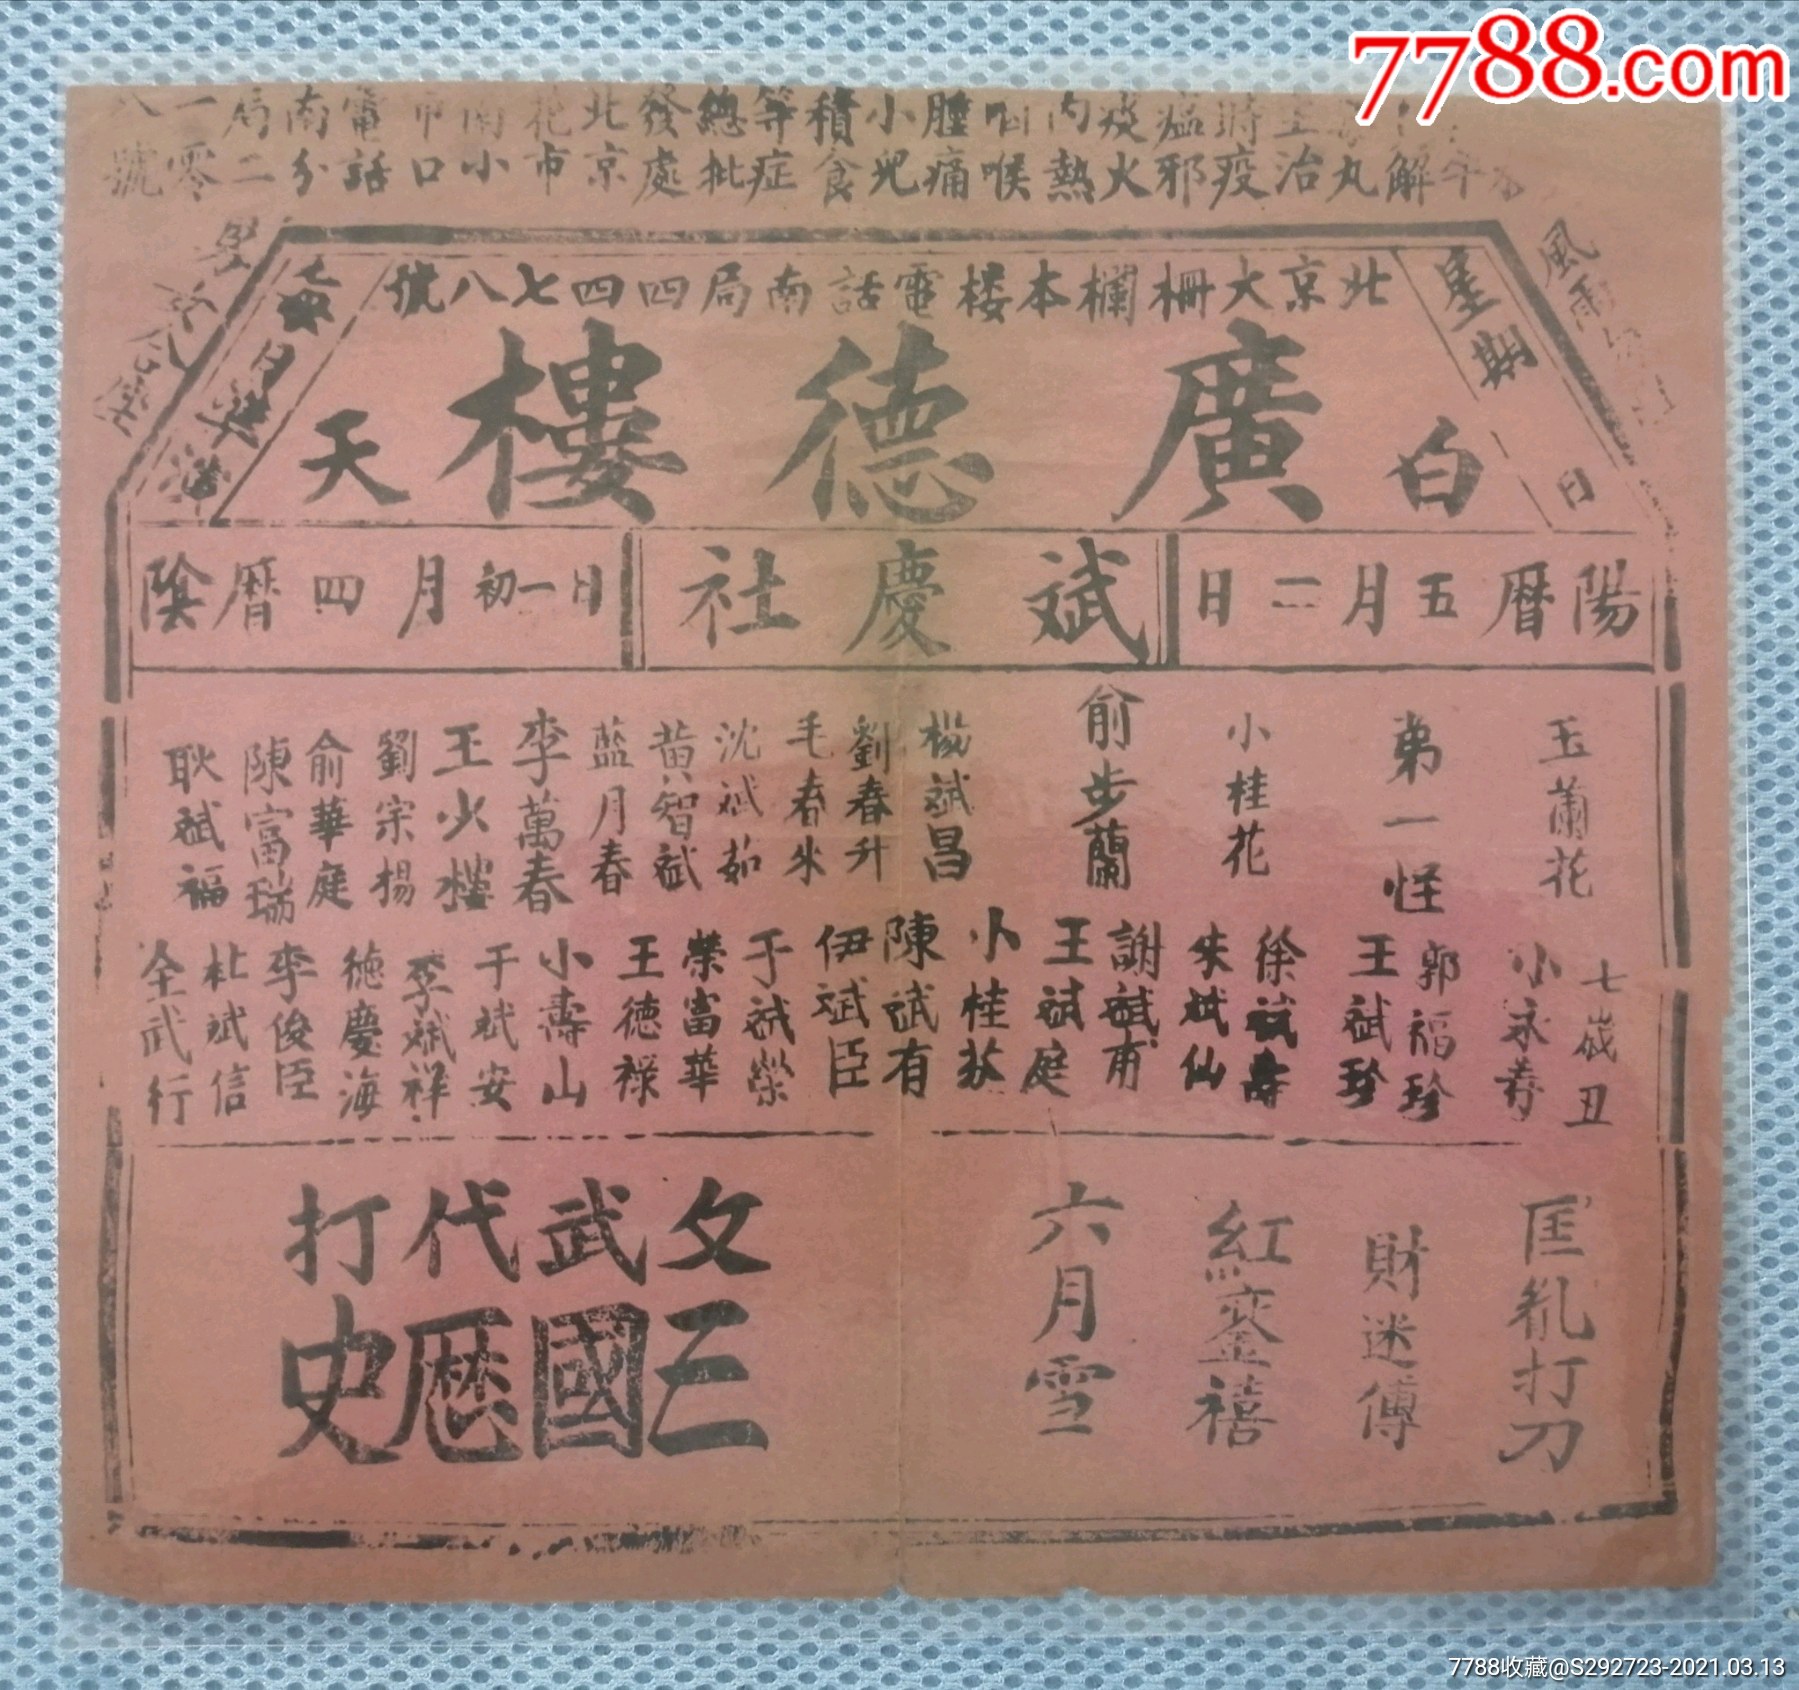 7788.com
解丸治疫邪火熱喉痛兒食症批處京市小口話分二零號
時瘟痰內咽腫小積等總發北花南市電南局一八
北京大柵欄本樓電話南局四四七八號
星期日
風雨
白天
廣德樓
陽曆五月二日
斌慶社
陰曆四月初一日
玉蘭花
第一怪
小桂花
俞步蘭
楊斌昌
劉春升
毛春來
沈斌茹
黄智斌
藍月春
李萬春
王少樓
劉宗楊
俞華庭
陳富瑞
耿斌福
七歲丑
小永壽
郭福珍
王斌珍
徐斌壽
朱斌仙
謝斌甫
王斌庭
小桂荪
陳斌有
伊斌臣
于斌榮
榮富華
王德禄
小壽山
于斌安
李斌祥
德慶海
李俊臣
杜斌信
全武行
匡亂打刀
財迷傳
紅鸞禧
六月雪
文武代打
三國歷史
7788收藏@S292723-2021.03.13